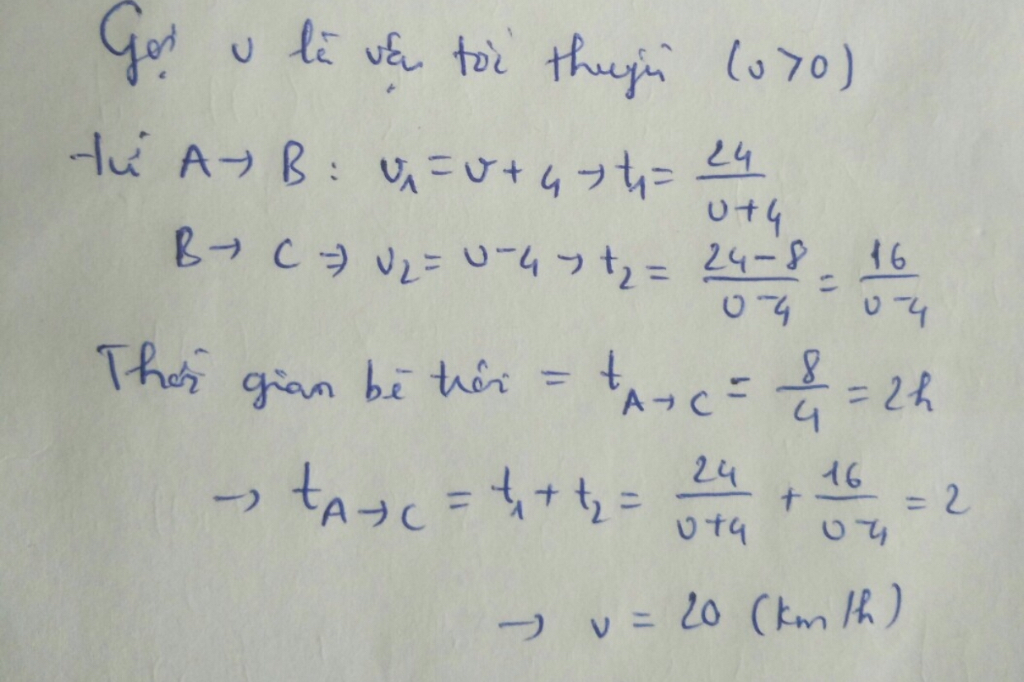 Gọi v là vận tốc thuyền (v>0)
từ A → B : v₁ = v + 4 → t₁ = 24/(v+4)
B → C ⇒ v₂ = v - 4 → t₂ = (24-8)/(v-4) = 16/(v-4)
Thời gian bè trôi = t A→C = 8/4 = 2h
→ t A→C = t₁ + t₂ = 24/(v+4) + 16/(v-4) = 2
→ v = 20 (km/h)